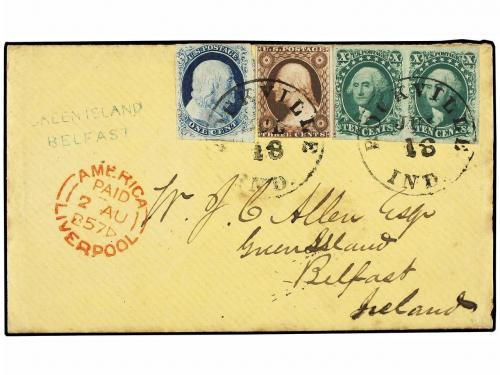 U.S. POSTAGE
ONE CENT
U.S. POSTAGE
THREE CENTS
X X
TEN CENTS
X X
TEN CENTS
18
IND.
JUL
18
IND.
GREENISLAND
BELFAST
AMERICA
PAID
2 AU
857
LIVERPOOL
W. J. C. Allen Esqr
Greenisland
Belfast
Ireland